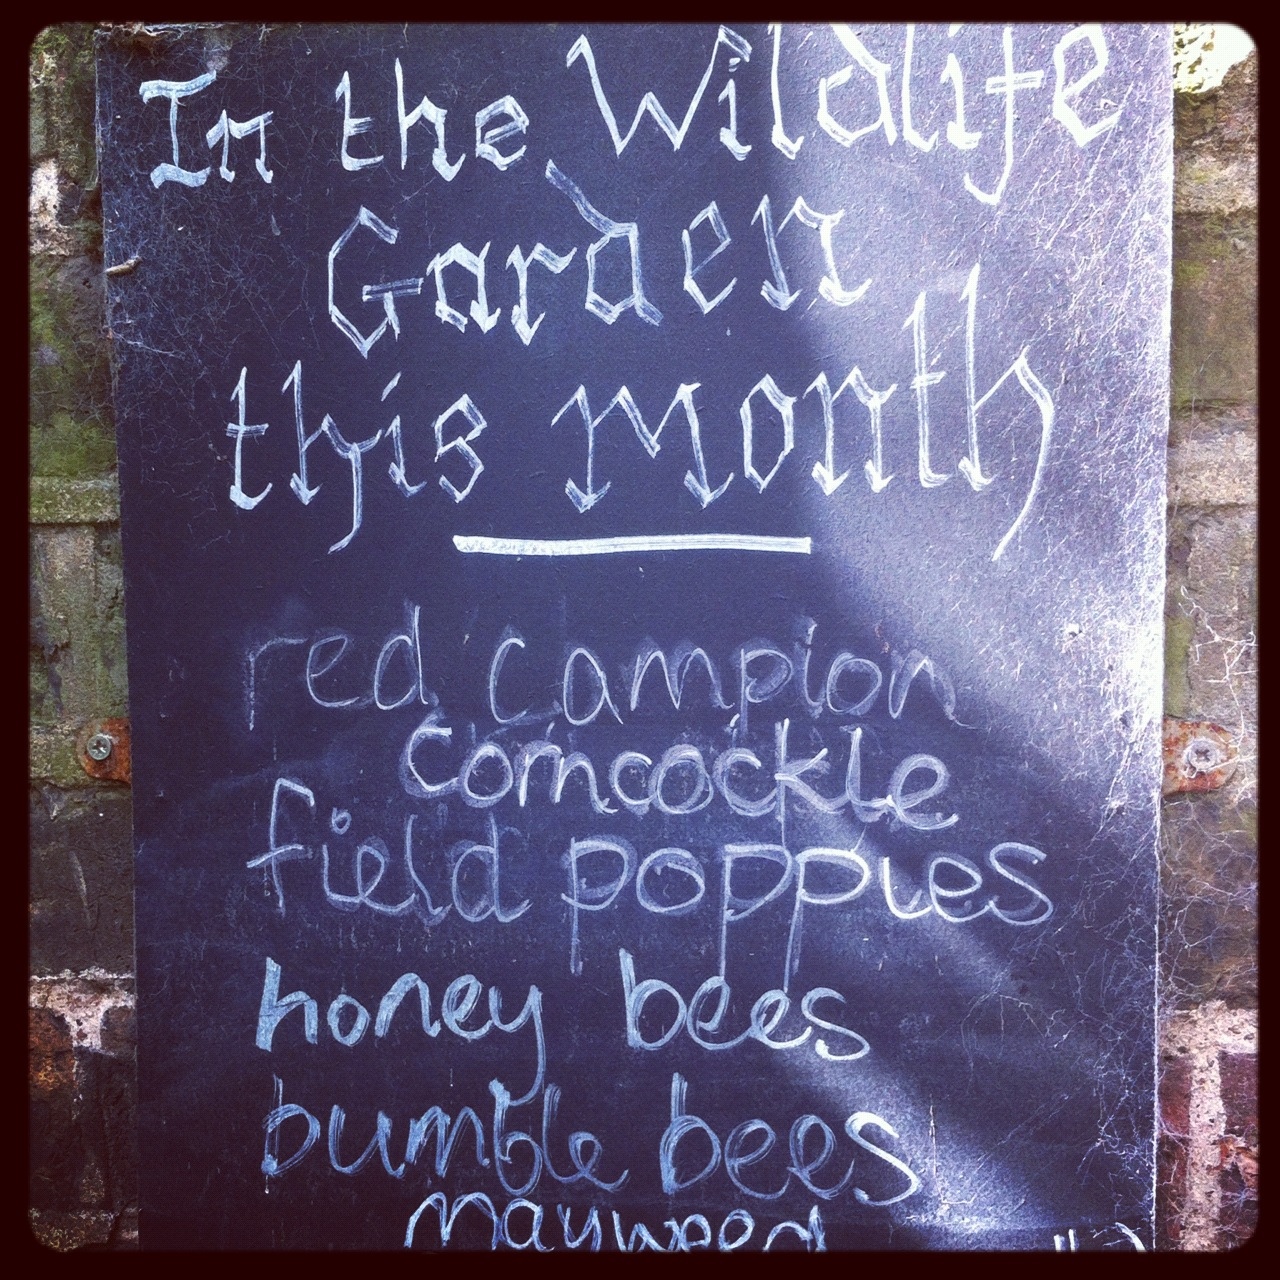 In the Wildlife
Garden
this Month
red campion
Corncockle
field poppies
honey bees
bumble bees
mayweed